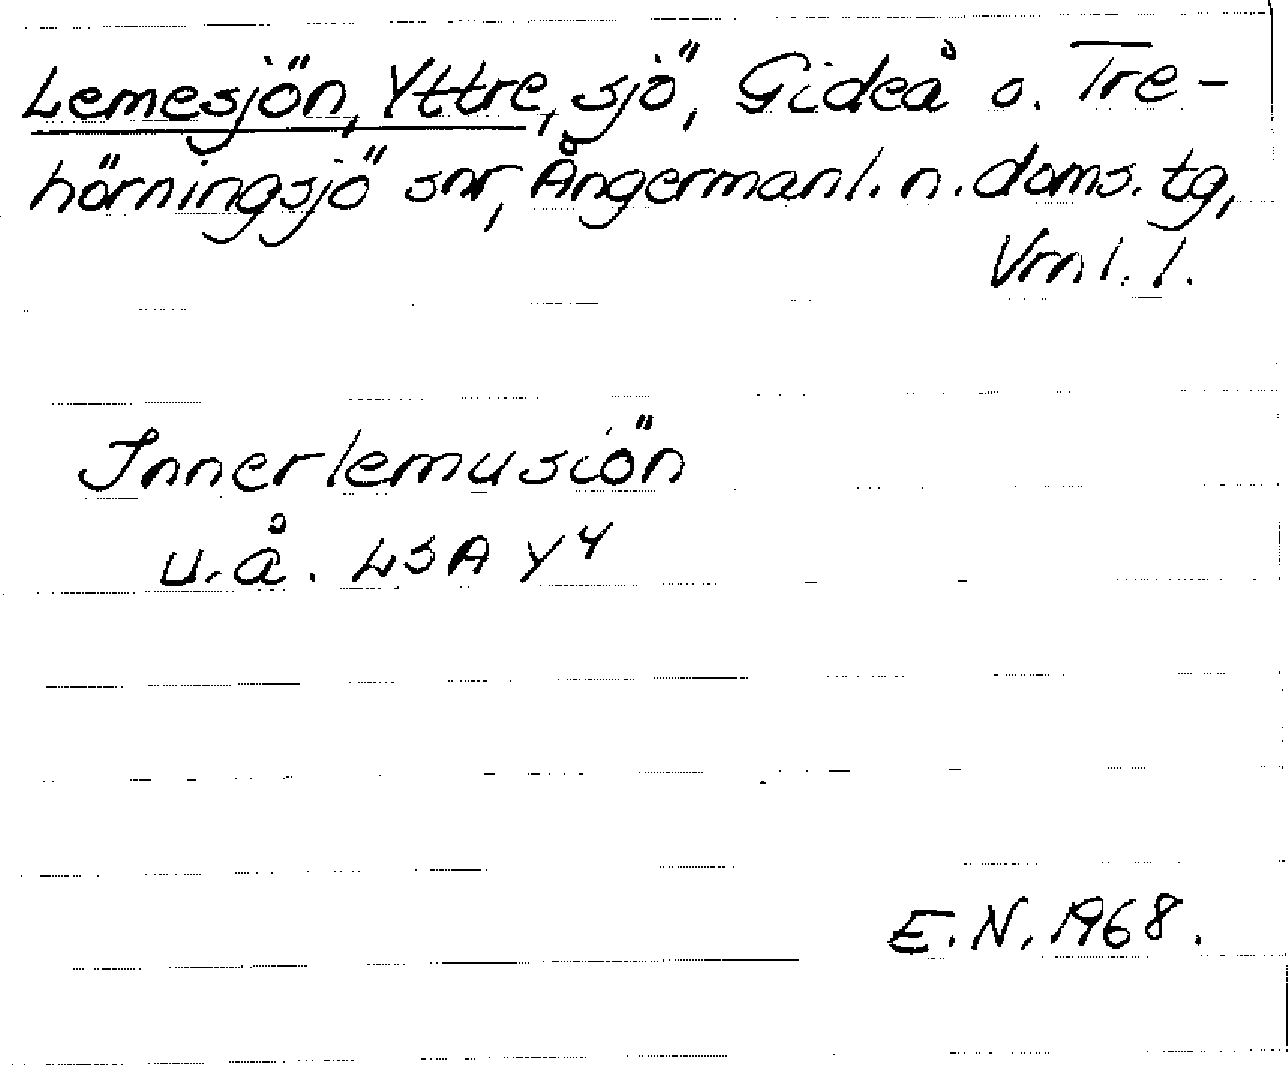 Lemesjön, Yttre, sjö, Gideå o. Tre-
hörningsjö snr, Ångermanl. n. doms. tg,
Vrnl. l.
Innerlemusiön
u. å. LSA Y4
E. N. 1968.